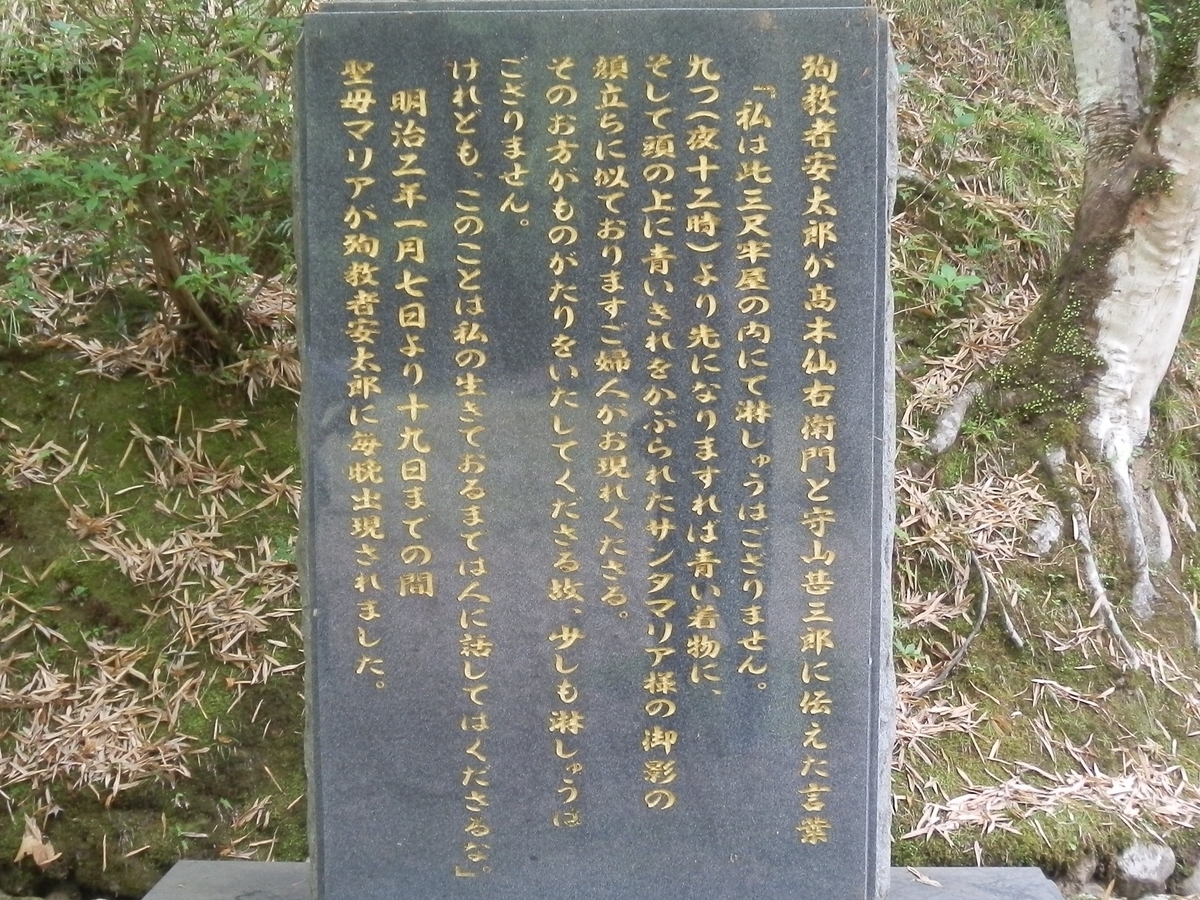 殉教者安太郎が高木仙右衛門と守山甚三郎に伝えた言葉
「私は此三尺牢屋の内にて淋しゅうはござりません。
九つ(夜十二時)より先になりますれば青い着物に、
そして頭の上に青いきれをかぶられたサンタマリア様の御影の
顔立ちに似ておりますご婦人がお現れくださる。
そのお方がものがたりをいたしてくださる故、少しも淋しゅうは
ござりません。
けれども、このことは私の生きておるまでは人に話してはくださるな。」
明治二年一月七日より十九日までの間
聖母マリアが殉教者安太郎に毎晩出現されました。